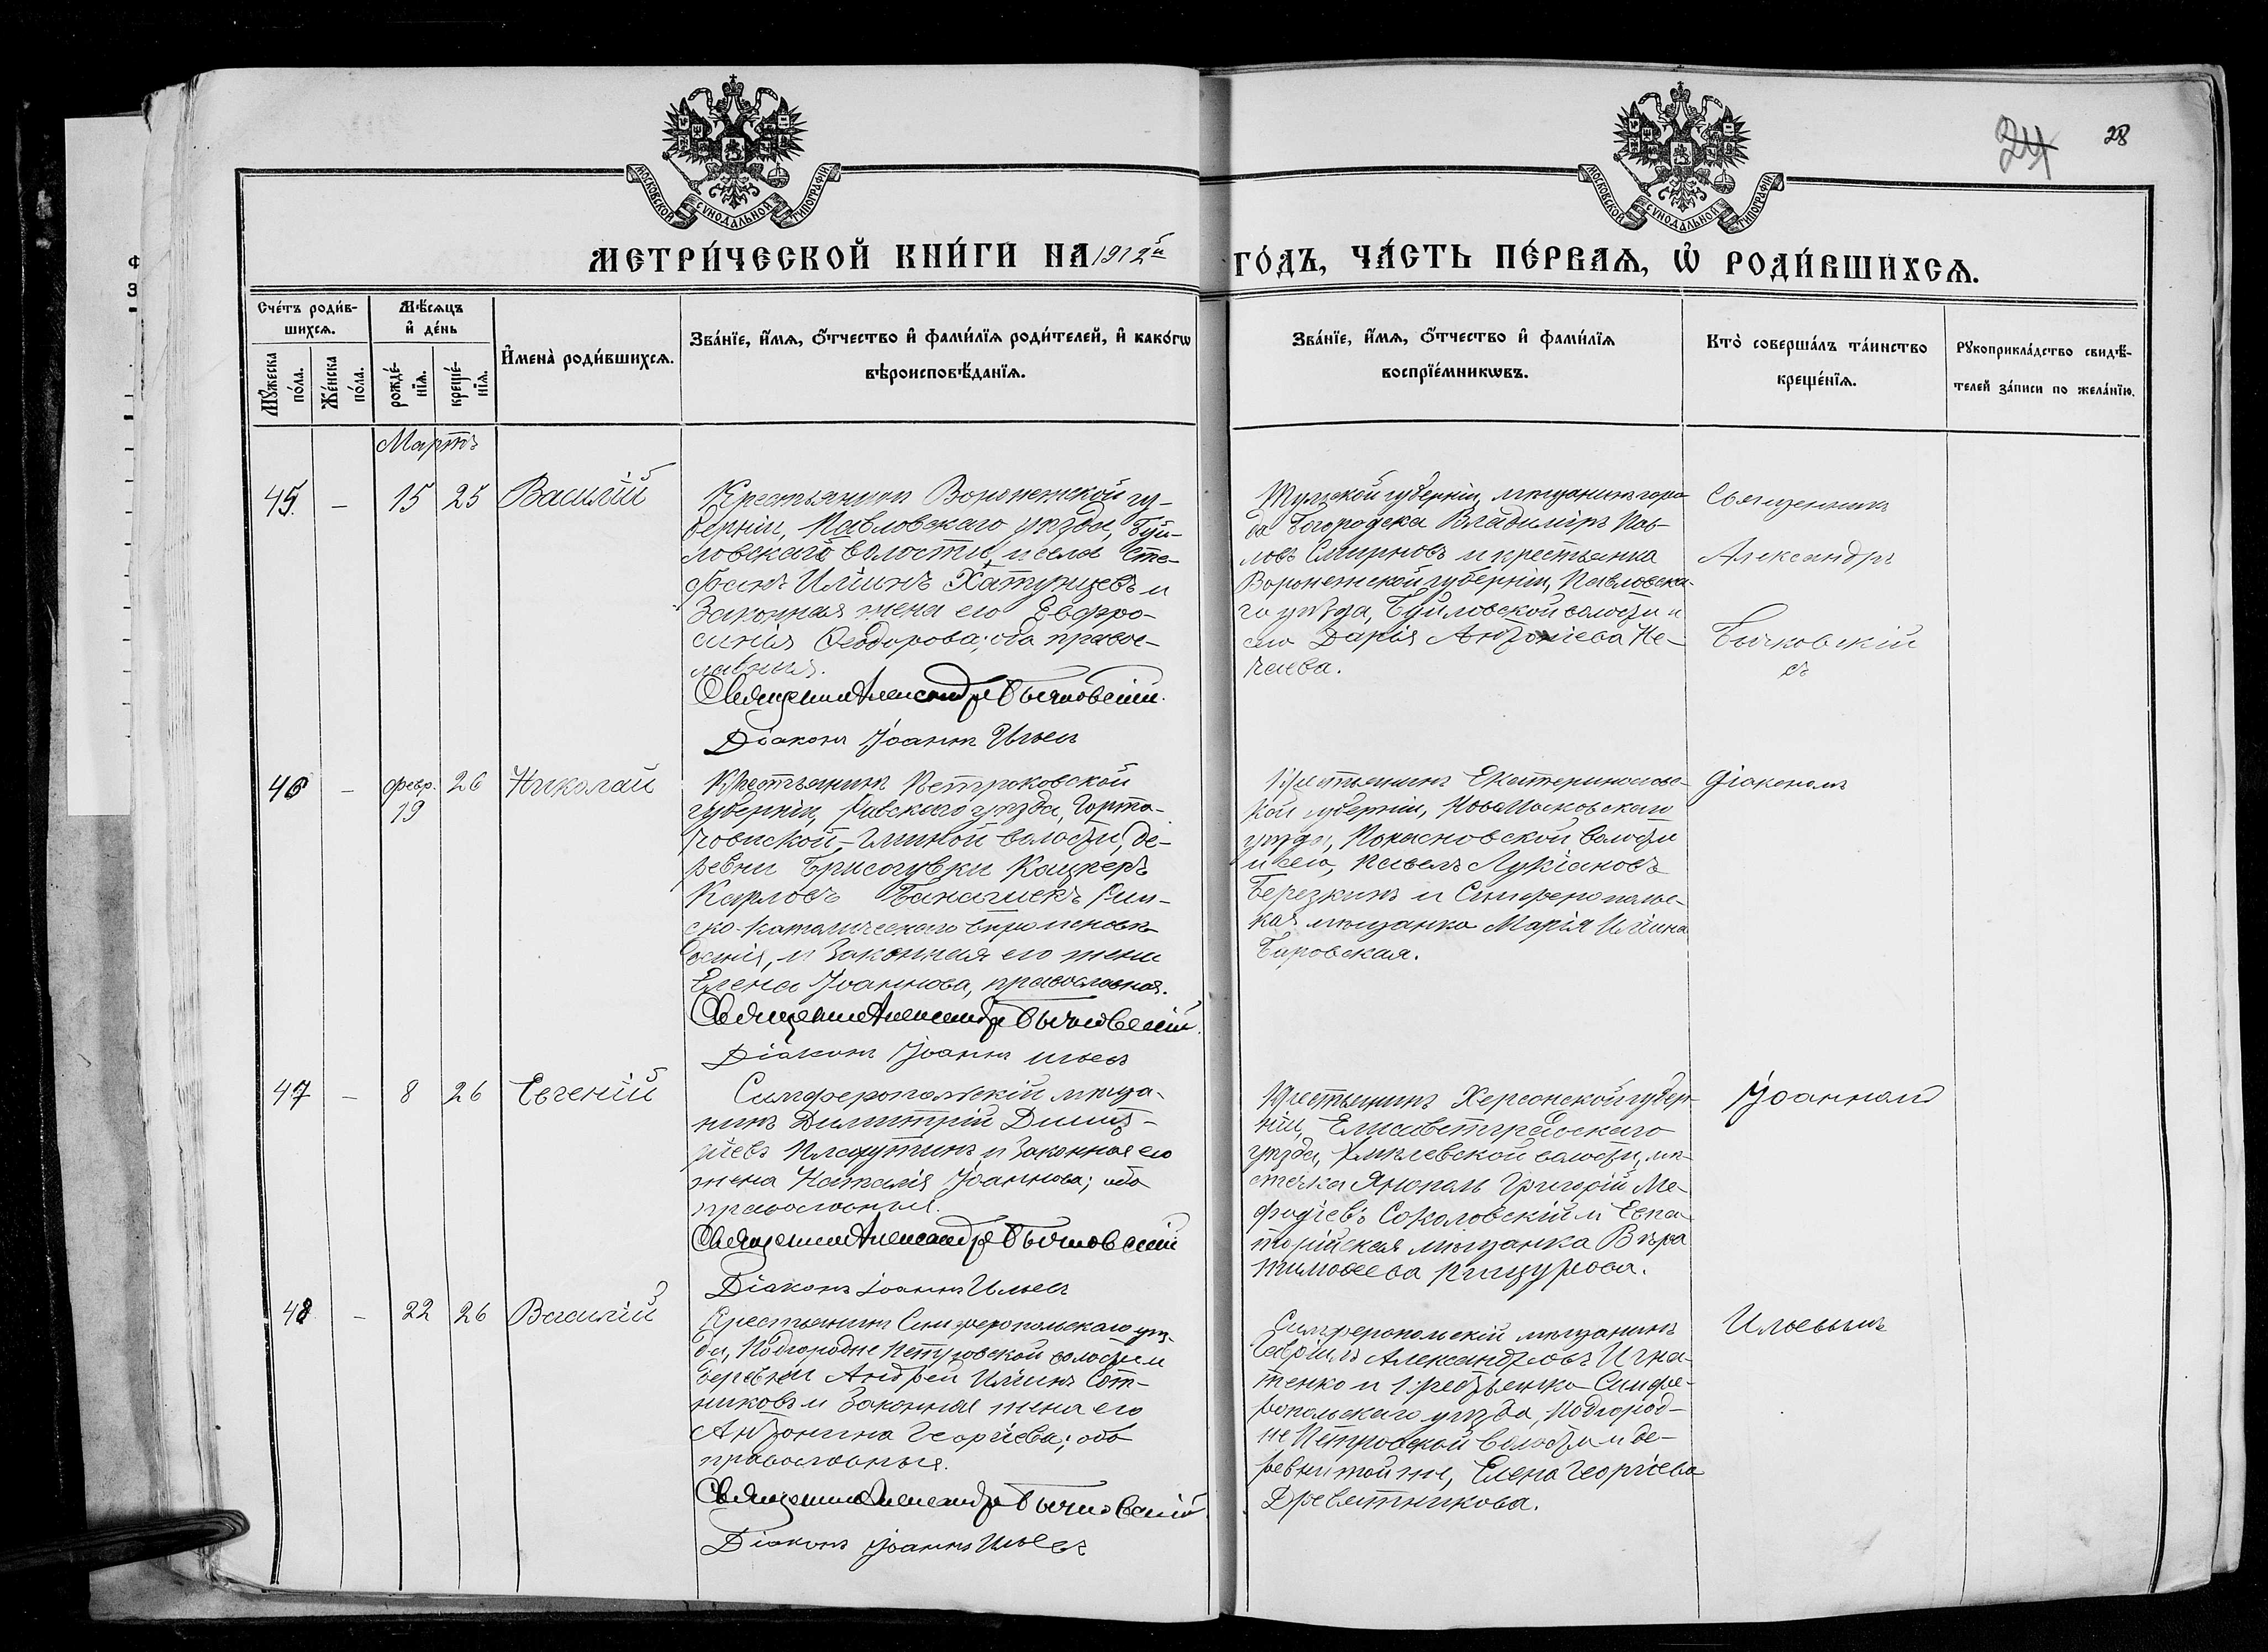 24 28
МОСКОВСКОЙ СѴНОДАЛЬНОЙ ТИПОГРАФІИ
МОСКОВСКОЙ СѴНОДАЛЬНОЙ ТИПОГРАФІИ
МЕТРИ́ЧЕСКОЙ КНИ́ГИ НА 1912й
ГО́ДЪ, ЧА́СТЬ ПЕ́РВАѦ, Ѡ РОДИ́ВШИХСѦ.
Сче́тъ роди́в-
шихсѧ.
Мꙋжеска по́ла.
Же́нска по́ла.
Мѣ́сѧцъ
и҆ де́нь
рожде́-
нїѧ.
креще́-
нїѧ.
И҆мена̀ роди́вшихсѧ.
Зва́нїе, и҆́мѧ, ѻ҆́тчество и҆ фами́лїѧ роди́телей, и҆ како́гѡ
вѣроисповѣ́данїѧ.
Зва́нїе, и҆́мѧ, ѻ҆́тчество и҆ фами́лїѧ
воспрїе́мникѡвъ.
Кто̀ соверша́лъ та́инство
креще́нїѧ.
Рꙋкоприкла́дство свидѣ́-
телей за́писи по жела́нїю.
Мартъ
45. – 15 25 Василій
Крестьянинъ Воронежской гу-
берніи, Павловскаго уѣзда, Буй-
ловскаго волости и села Сте-
фанъ Иліинъ Хатунцевъ и
Законная жена его Евфро-
синія Ѳеодорова; оба правос-
лавныя.
Священникъ Александръ Бычковскій.
Діаконъ Іоаннъ Ильевъ
Тульской губерніи, мѣщанинъ горо-
да Богородска Владиміръ Пав-
ловъ Смирновъ и крестьянка
Воронежской губерніи, Павловска-
го уѣзда, Буйловской волости и
села Дарія Антоніева Не-
чаева.
Священникъ
Александръ
Бычковскій
съ
46 – февр. 19 26 Николай
Крестьянинъ Петроковской
губерніи, Равскаго уѣзда,
волости, де-
ревни Кацперъ
Карловъ Рим-
ско-католическаго вѣроисповѣ-
данія, и Законная его жена
Елена Іоаннова, православная.
Священникъ Александръ Бычковскій.
Діаконъ Іоаннъ Ильевъ
Крестьянинъ Екатеринославс-
кой губерніи, Новомосковскаго
уѣзда, волости
и села, Павелъ Лукіановъ
Березкинъ и Симферопольс-
кая мѣщанка Марія Иліина
Баровская.
Діакономъ
47 – 8 26 Евгеній
Симферопольскій мѣща-
нинъ Димитрій Димит-
ріевъ и Законная его
жена Наталія Іоаннова; оба
православныя.
Священникъ Александръ Бычковскій
Діаконъ Іоаннъ Ильевъ
Крестьянинъ Херсонской губер-
ніи, Елисаветградскаго
уѣзда, волости, мѣ-
стечка Григорій Ме-
фодіевъ Соколовскій и Евпа-
торійская мѣщанка Вѣра
Тимоѳеева
Іоанномъ
48 – 22 26 Василій
Крестьянинъ Симферопольскаго уѣз-
да, Подгородне Петровской волости и
деревни Андрей Иліинъ Сот-
никовъ и Законная жена его
Антонина Георгіева; оба
православныя.
Священникъ Александръ Бычковскій
Діаконъ Іоаннъ Ильевъ
Симферопольскій мѣщанинъ
Гавріилъ Александровъ Игна-
тенко и крестьянка Симфе-
ропольскаго уѣзда, Подгород-
не Петровской волости и де-
ревни той же, Елена Георгіева
Древятникова.
Ильевымъ